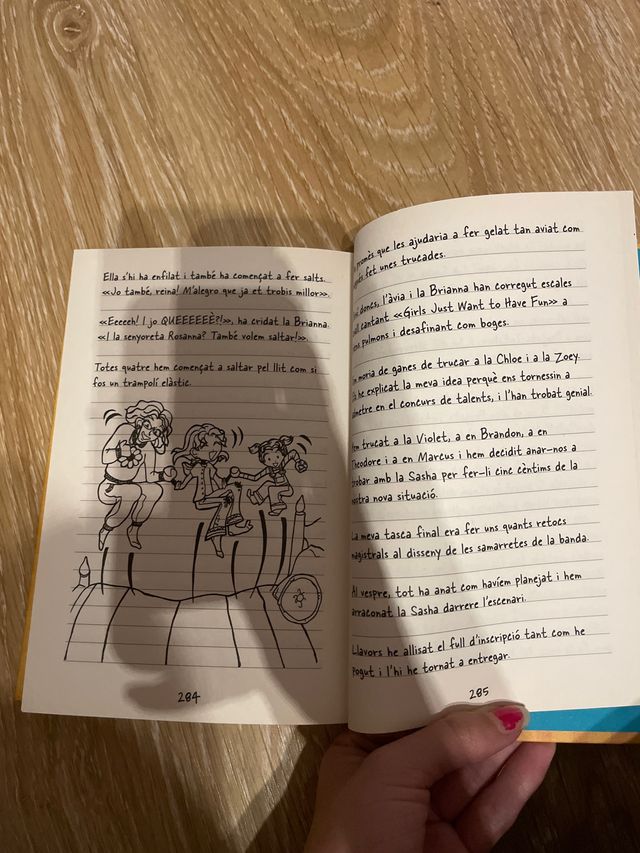 Ella s'hi ha enfilat i també ha començat a fer salts.
«Jo també, reina! M'alegro que ja et trobis millor».
«Eeeeeh! I jo QUEEEEEÈ?!», ha cridat la Brianna.
«I la senyoreta Rosanna? També volem saltar!».
Totes quatre hem començat a saltar pel llit com si
fos un trampolí elàstic.
284
que les ajudaria a fer gelat tan aviat com
fet unes trucades.
doncs, l'àvia i la Brianna han corregut escales
cantant «Girls Just Want to Have Fun» a
pulmons i desafinant com boges.
moria de ganes de trucar a la Chloe i a la Zoey.
he explicat la meva idea perquè ens tornessin a
en el concurs de talents, i l'han trobat genial.
trucat a la Violet, a en Brandon, a en
Theodore i a en Marcus i hem decidit anar-nos a
trobar amb la Sasha per fer-li cinc cèntims de la
nostra nova situació.
La meva tasca final era fer uns quants retocs
magistrals al disseny de les samarretes de la banda.
Al vespre, tot ha anat com havíem planejat i hem
arraconat la Sasha darrere l'escenari.
Llavors he allisat el full d'inscripció tant com he
pogut i l'hi he tornat a entregar.
285